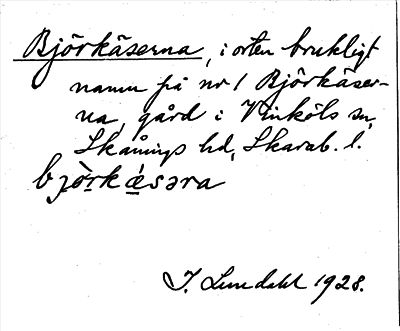 Björkäserna, i orten brukligt
namn på nr 1 Björkäser-
na, gård i Vinköls sn,
Skånings hd, Skarab. l.
bjò̱rkǽ̱səra
J. Lundahl 1928.